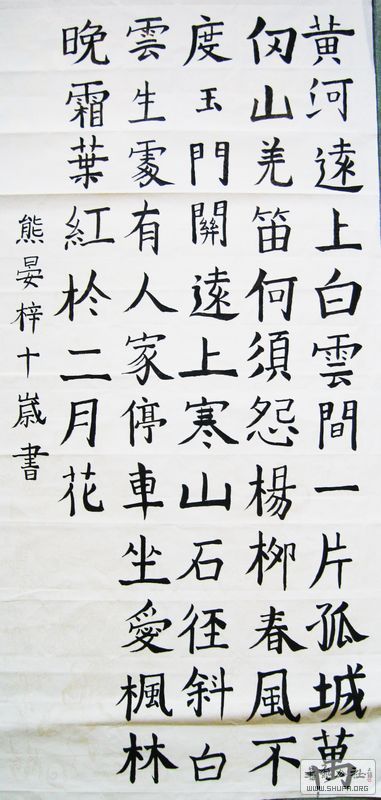 黃河遠上白雲間一片孤城萬
仞山羌笛何須怨楊柳春風不
度玉門關遠上寒山石徑斜白
雲生處有人家停車坐愛楓林
晚霜葉紅於二月花
熊晏梓十歲書
WWW.SHUFA.ORG